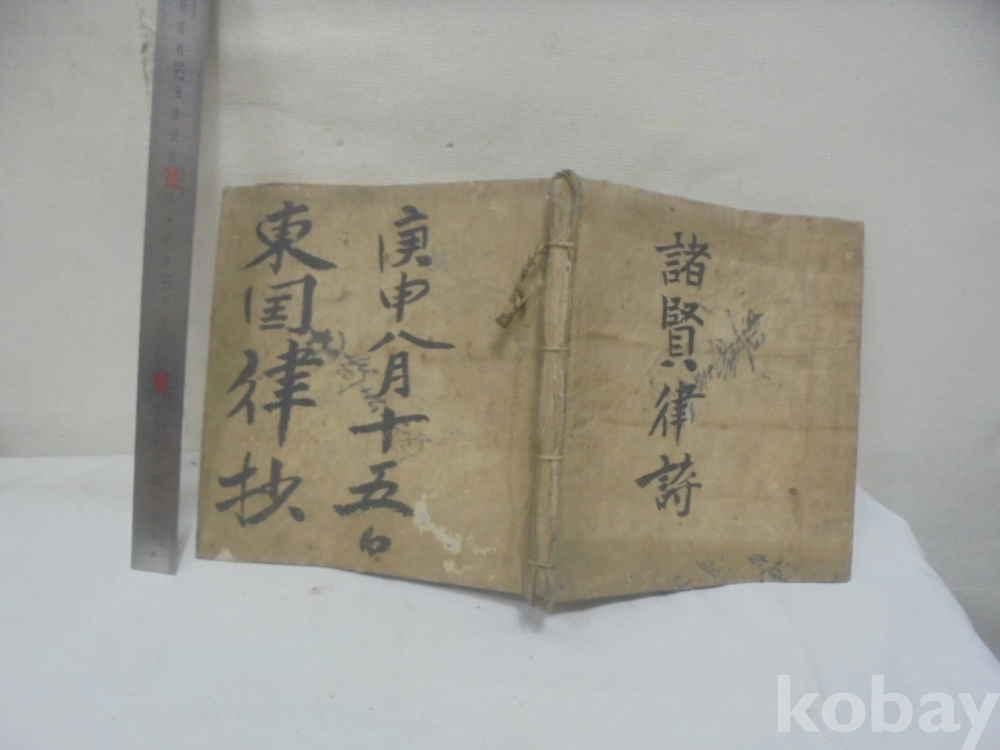 諸賢律詩
庚申八月十五日
東囯律抄
kobay